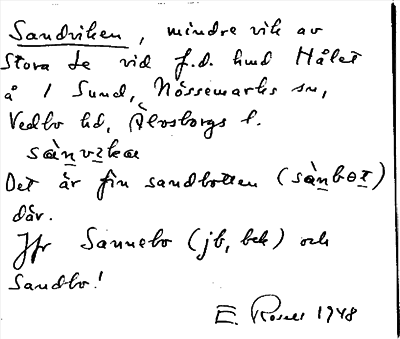 Sandviken, mindre vik av
Stora Le vid f.d. hmd Hålet
å / Sund, Nössemarks sn,
Vedbo hd, Älvsborgs l.
sànvika
Det är fin sandbotten (sànbot)
där.
Jfr Sannebo (jb, bek) och
Sandbo!
E. Rosell 1948